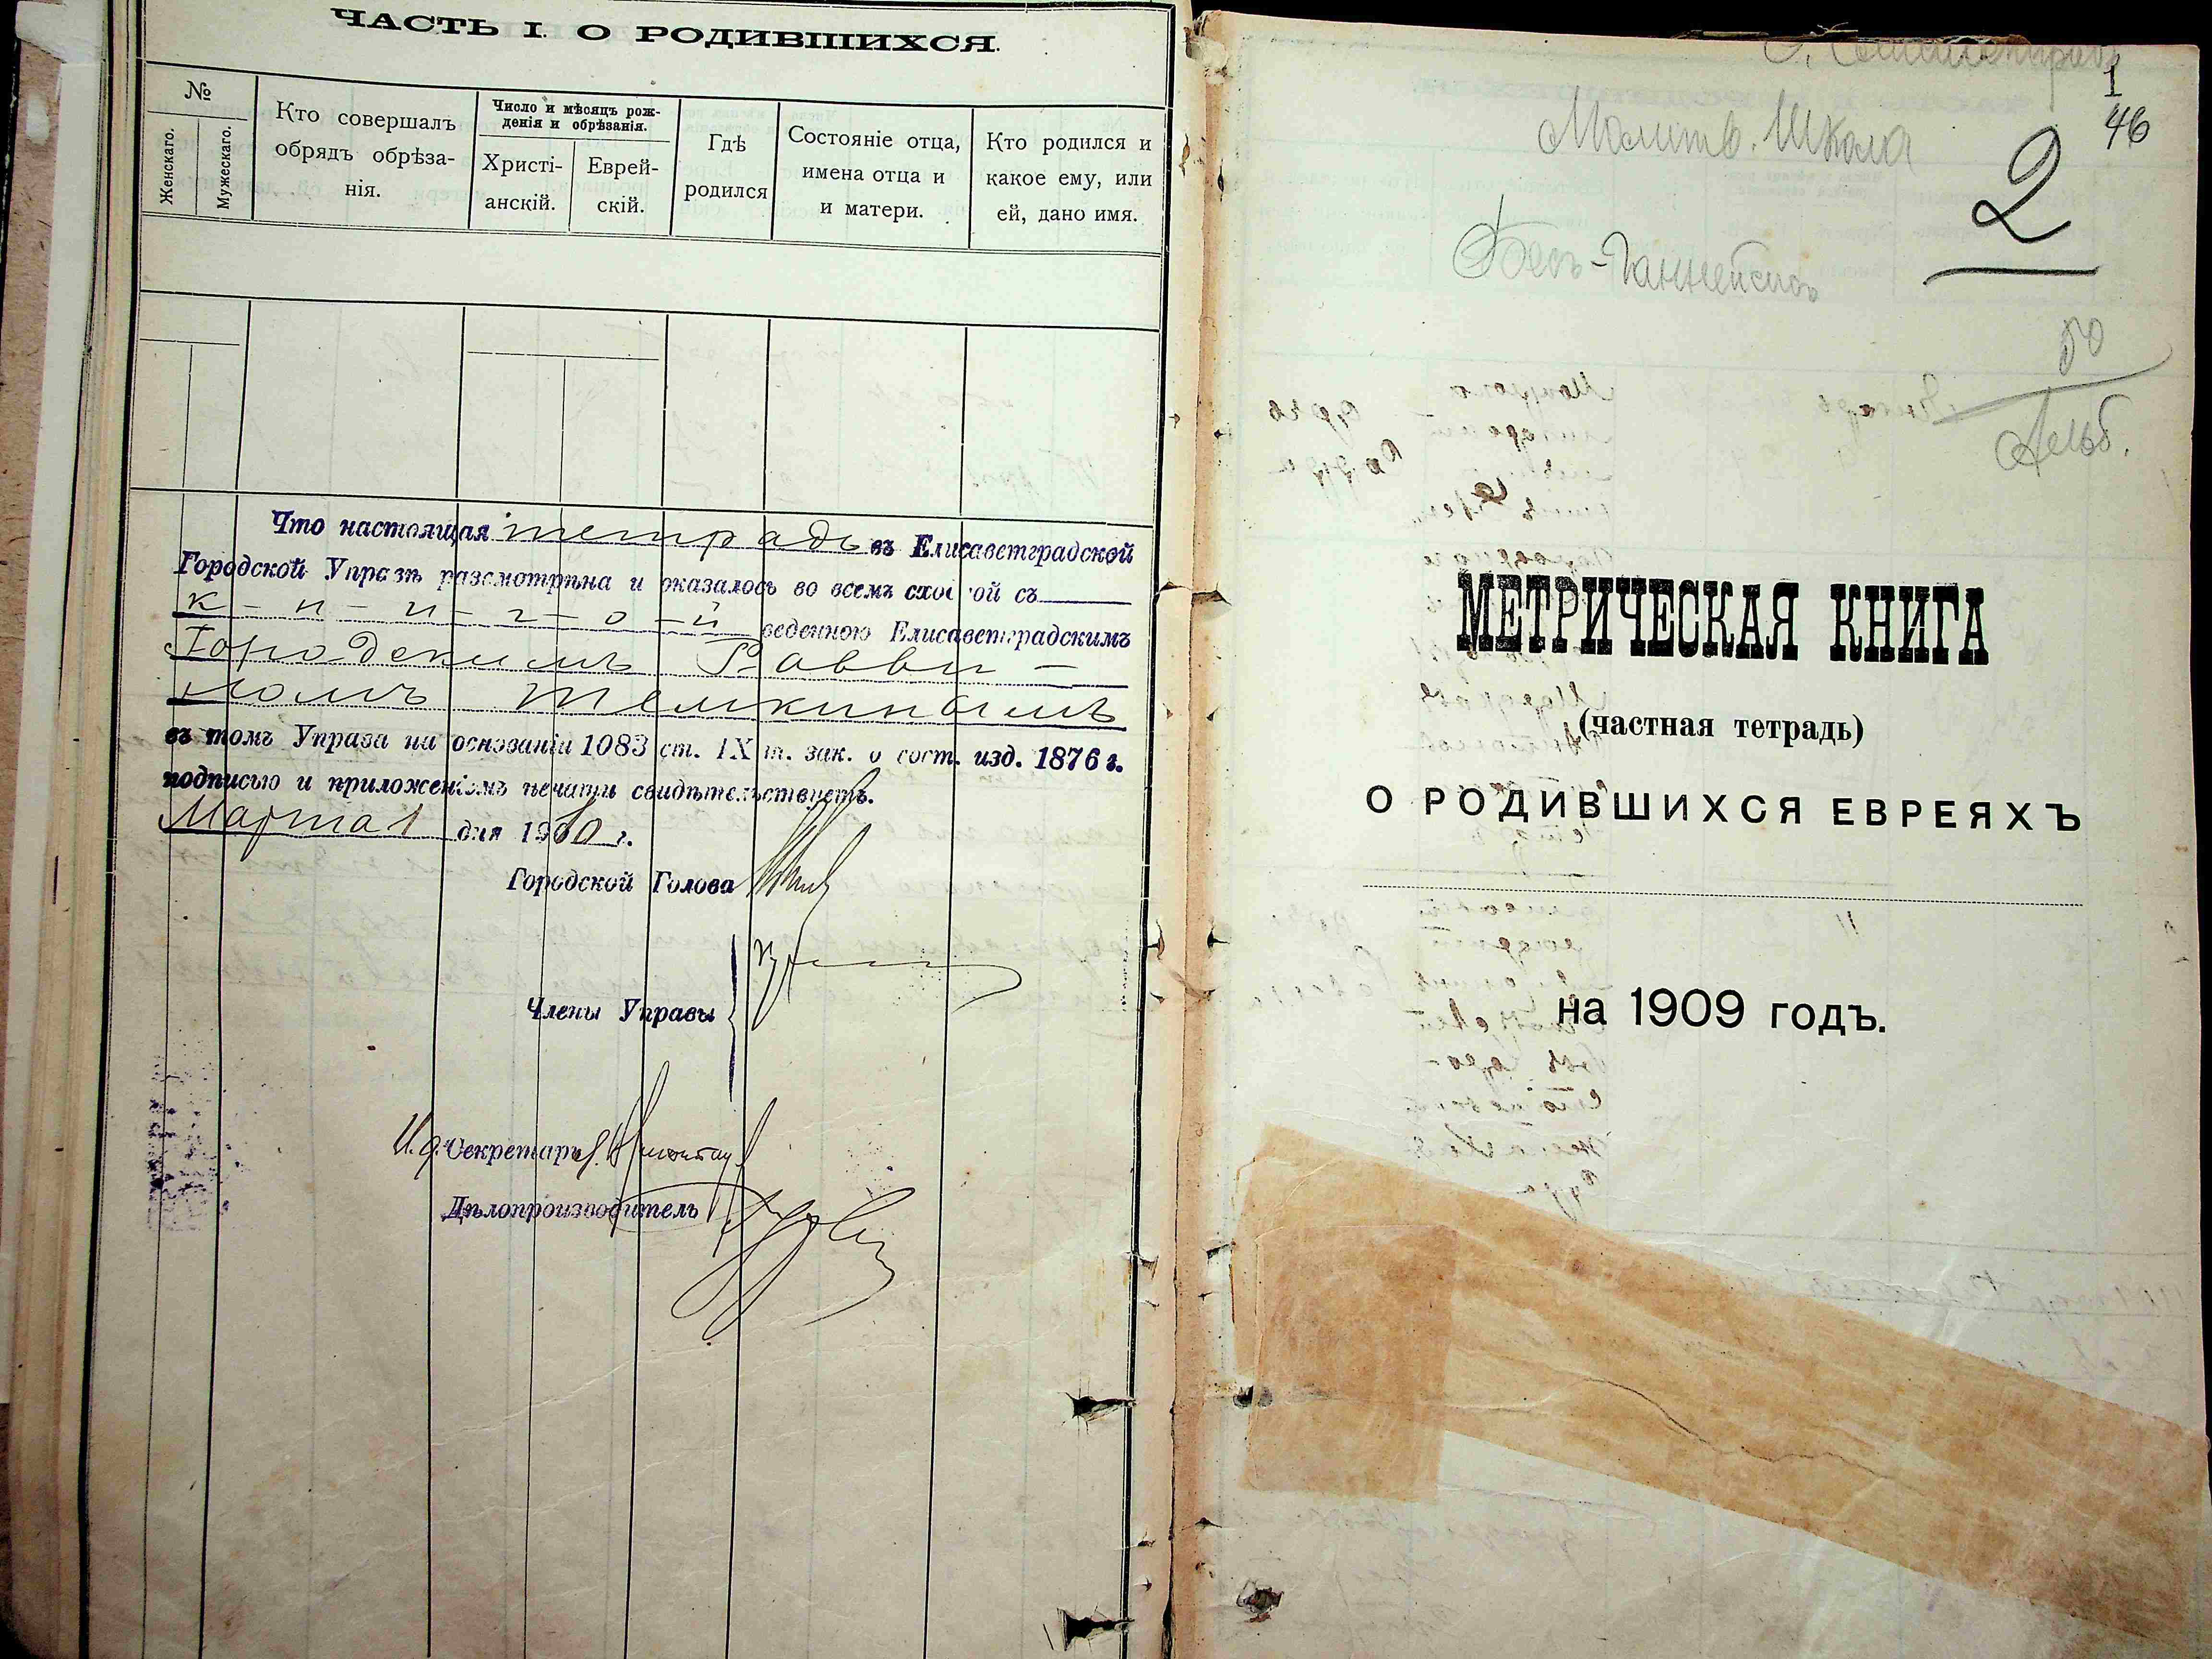 ЧАСТЬ I. О РОДИВШИХСЯ.
№
Женскаго.
Мужескаго.
Кто совершалъ
обрядъ обрѣза-
нія.
Число и мѣсяцъ рож-
денія и обрѣзанія.
Христі-
анскій.
Еврей-
скій.
Гдѣ
родился
Состояніе отца,
имена отца и
и матери.
Кто родился и
какое ему, или
ей, дано имя.
Что настоящая тетрадь въ Елисаветградской
Городской Управѣ разсмотрѣна и оказалось во всемъ сход ой съ
к-н-и-г-о-й веденною Елисаветградскимъ
Городскимъ Равви-
номъ Темкинымъ
въ томъ Управа на основаніи 1083 ст. IX т. зак. о сост. изд. 1876 г.
подписью и приложеніемъ печати свидѣтельствуетъ.
Марта 1 дня 1910 г.
Городской Голова
Члены Управы
И. д. Секретаря
Дѣлопроизводитель
1
46
Молитв. Школа
2
50
МЕТРИЧЕСКАЯ КНИГА
(частная тетрадь)
О РОДИВШИХСЯ ЕВРЕЯХЪ
на 1909 годъ.